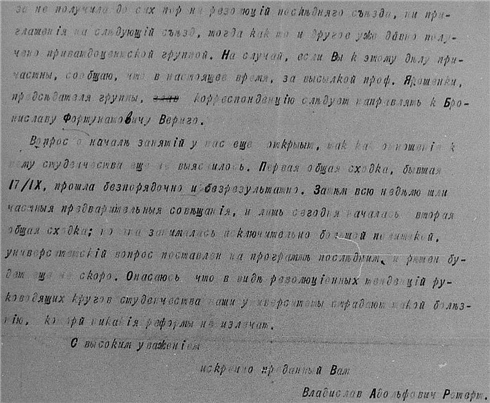 за не получила до сих пор ни резолюцій послѣдняго съѣзда, ни при-
глашенія на слѣдующій съѣзд, тогда как то и другое уже давно полу-
чено приватдоцентской группой. На случай, если Вы к этому дѣлу при-
частны, сообщаю, что в настоящее время, за высылкой проф. Ярошенки,
предсѣдателя группы, корреспонденцію слѣдует направлять к Бро-
ниславу Фортунатовичу Вериго.
Вопрос о началѣ занятій у нас еще открыт, так как отношеніе к
нему студенчества еще не выяснилось. Первая общая сходка, бывшая
17/IX, прошла безпорядочно и безрезультатно. Затѣм всю недѣлю шли
частныя предварительныя совѣщанія, и лишь сегодня началась вторая
общая сходка; но она занималась исключительно большой политикой,
университетскій вопрос поставлен на программѣ послѣдним и рѣшен бу-
дет еще не скоро. Опасаюсь что в видѣ революціонных тенденцій ру-
ководящих кругов студенчества наши университеты страдают такой болѣз-
нію, которой никакія реформы не излечат.
С высоким уваженіем
искренно преданный Вам
Владислав Адольфович Ротерт.